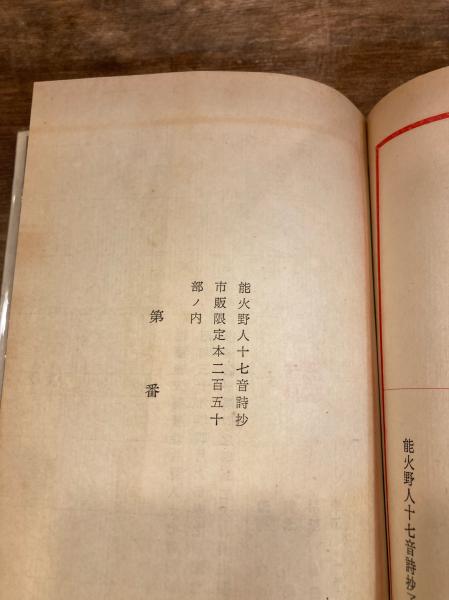 能火野人十七音詩抄
市販限定本二百五十
部ノ内
第　番
能火野人十七音詩抄